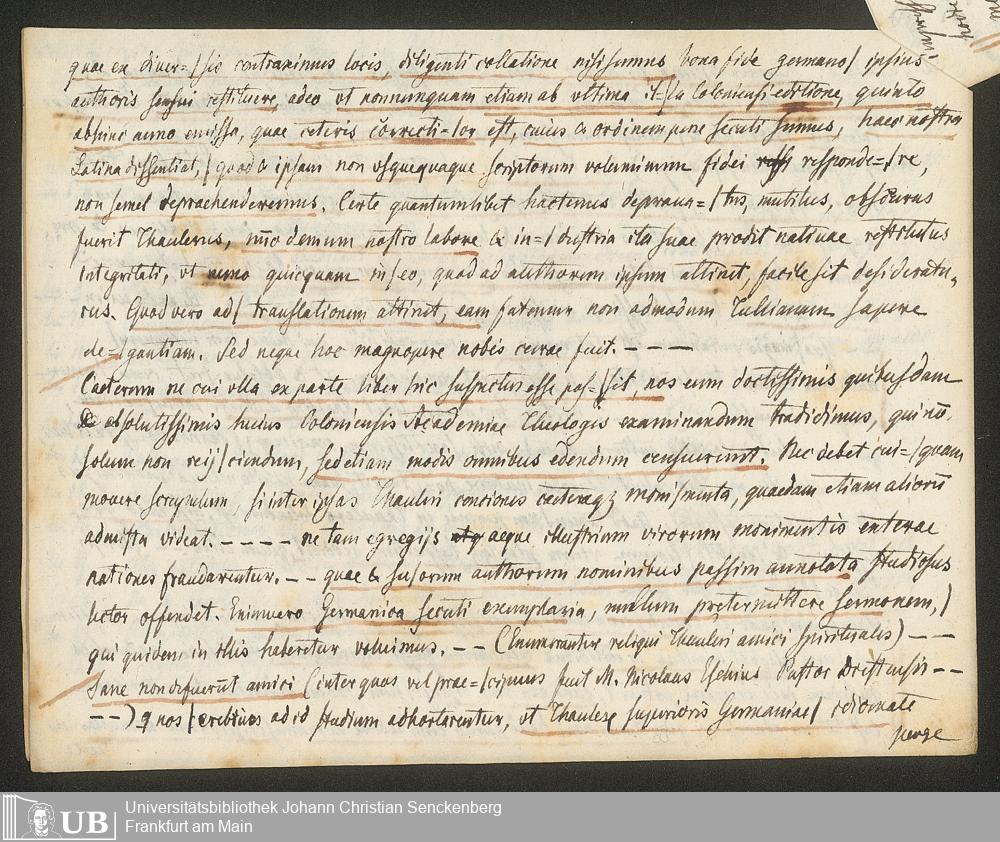 quae ex diuer=/sis contraximus locis, diligenti collatione nisi sumus bona fide germano/ ipsius
authoris sensui restituere, adeo vt nonnunquam etiam ab vltima il=/la Coloniensi editione, quinto
abhinc anno emissa, quae ceteris correcti=/or est, cuius & ordinem pene secuti sumus, haec nostra
Latina dissentiat,/ quod & ipsam non vsquequaque scriptorum voluminum fidei responde=/re,
non semel depraehenderemus. Certe quantumlibet hactenus deprava=/tus, mutilus, obscurus
fuerit Thaulerus, nunc demum nostro labore & in=/dustria ita suae prodit natiuae restitutus
integritati, vt nemo quicquam in/eo, quod ad authorem ipsum attinet, facile sit desideratu-
rus. Quod vero ad/ translationem attinet, eam fatemur non admodum Tullianam sapere
ele=/gantiam. Sed neque hoc magnopere nobis curae fuit. - - -
Caeterum ne cui vlla ex parte liber hic suspectus esse pos=/sit, nos eum doctissimis quibusdam
& absolutissimis huius Coloniensis Academiae Theologis examinandum tradidimus, qui nō
solum non reij/ciendum, sed etiam modis omnibus edendum censuerunt. Nec debet cui=/quam
mouere scrupulum, si inter ipsas Thauleri conciones caeteraqȝ monimenta, quaedam etiam aliorū
admista videat. - - - - ne tam egregijs aeque illustrium virorum monimentis exterae
nationes fraudarentur. - - quae & suorum authorum nominibus passim annotata studiosus
lector offendet. Enimuero Germanica secuti exemplaria, nullum pretermittere sermonem,/
qui quidem in illis haberetur voluimus. - - (Enumerantur reliqui Thauleri amici spirituales) - -
Sane non defuerūt amici (inter quos vel prae=/cipuus fuit M. Nicolaus Eschius Pastor Diestensis - -
- - ) q nos/ crebrius ad id studium adhortarentur, vt Thaulerū superioris Germaniae/ idiomate
perge
Universitätsbibliothek Johann Christian Senckenberg
UB Frankfurt am Main